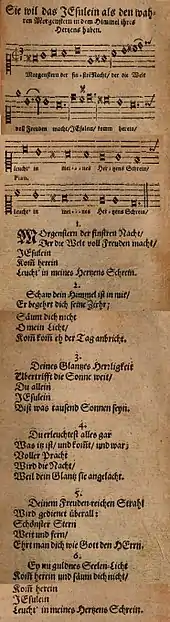 Sie wil das JEsulein als den wah-
ren Morgenstern in dem Himmel ihres
Hertzens haben.
Morgenstern der finstern Nacht/ der die Welt
voll Freuden macht/ JEsulein/ komm herein/
leucht' in meines Hertzens Schrein/
Pian.
leucht' in meines Hertzens Schrein/
1.
MOrgenstern der finstren Nacht/
Der der Welt voll Freuden macht/
JEsulein
Kom̃ herein
Leucht' in meines Hertzens Schrein.
2.
Schau dein Himmel ist in mir/
Er begehrt dich seine Zihr;
Säum dich nicht
O mein Licht/
Kom̃ kom̃ eh der Tag anbricht.
3.
Deines Glantzes Herrligkeit
Ubertrifft die Sonne weit/
Du allein
JEsulein
Bist was tausend Sonnen seyn.
4.
Du erleuchtest alles gar
Was itzt ist/ und kom̃t/ und war;
Voller Pracht
Wird die Nacht/
Weil dein Glantz sie angelacht.
5.
Deinem Freuden-reichen Strahl
Wird gedienet überall;
Schönster Stern
Weit und fern/
Ehrt man dich wie Gott den HErrn.
6.
Ey nu guldnes Seelen-Licht
Kom̃ herein und säum dich nicht/
Kom̃ herein
JEsulein
Leucht' in meines Hertzens Schrein.